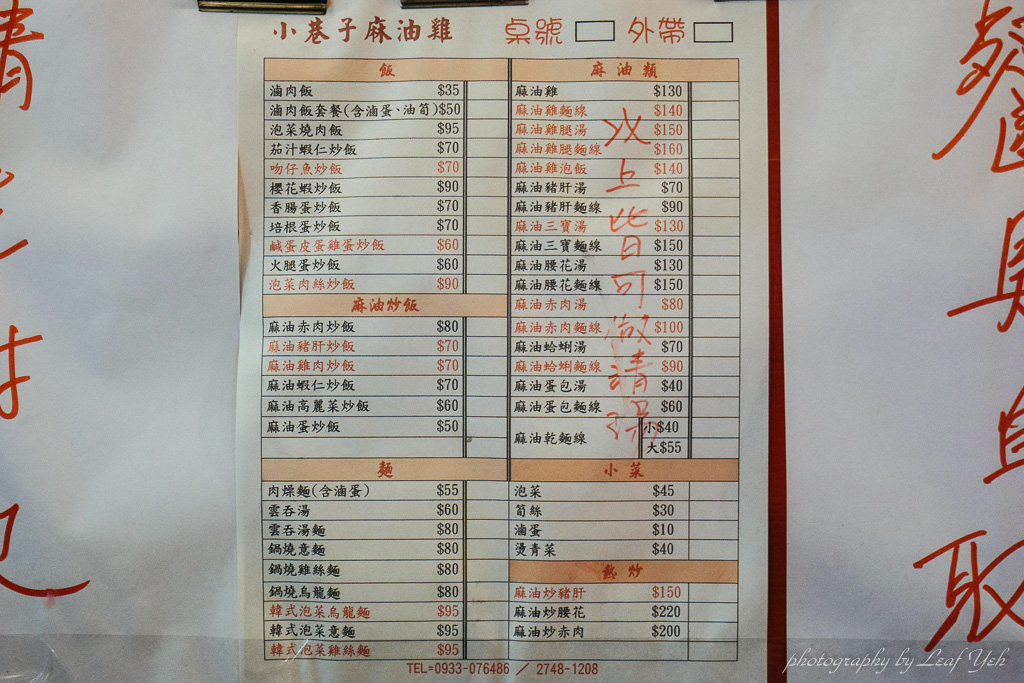 小巷子麻油雞 桌號 外帶
飯
滷肉飯 $35
滷肉飯套餐(含滷蛋、油筍) $50
泡菜燒肉飯 $95
茄汁蝦仁炒飯 $70
吻仔魚炒飯 $70
櫻花蝦炒飯 $90
香腸蛋炒飯 $70
培根蛋炒飯 $70
鹹蛋皮蛋雞蛋炒飯 $60
火腿蛋炒飯 $60
泡菜肉絲炒飯 $90
麻油炒飯
麻油赤肉炒飯 $80
麻油豬肝炒飯 $70
麻油雞肉炒飯 $70
麻油蝦仁炒飯 $70
麻油高麗菜炒飯 $60
麻油蛋炒飯 $50
麵
肉燥麵(含滷蛋) $55
雲吞湯 $60
雲吞湯麵 $80
鍋燒意麵 $80
鍋燒雞絲麵 $80
鍋燒烏龍麵 $80
韓式泡菜烏龍麵 $95
韓式泡菜意麵 $95
韓式泡菜雞絲麵 $95
麻油類
麻油雞 $130
麻油雞麵線 $140
麻油雞腿湯 $150
麻油雞腿麵線 $160
麻油雞泡飯 $140
麻油豬肝湯 $70
麻油豬肝麵線 $90
麻油三寶湯 $130
麻油三寶麵線 $150
麻油腰花湯 $130
麻油腰花麵線 $150
麻油赤肉湯 $80
麻油赤肉麵線 $100
麻油蛤蜊湯 $70
麻油蛤蜊麵線 $90
麻油蛋包湯 $40
麻油蛋包麵線 $60
麻油乾麵線 小$40
大$55
以上皆可做清湯
小菜
泡菜 $45
筍絲 $30
滷蛋 $10
燙青菜 $40
熱炒
麻油炒豬肝 $150
麻油炒腰花 $220
麻油炒赤肉 $200
TEL=0933-076486 / 2748-1208
餐具自取
photography by Leaf Yeh